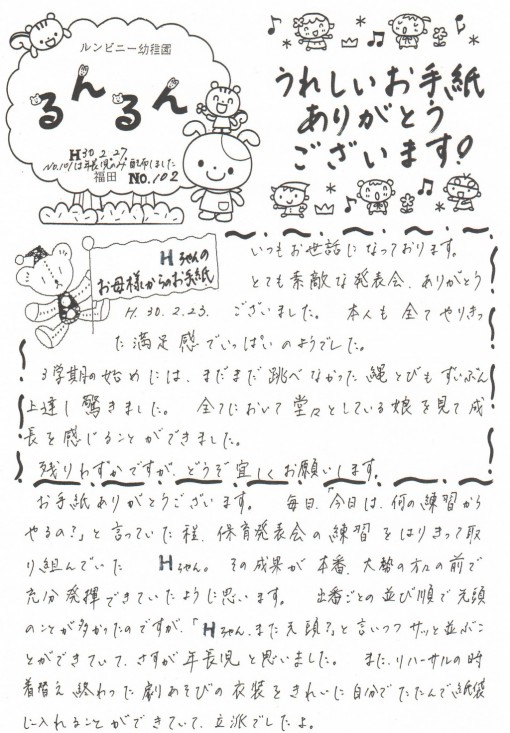 ルンビニー幼稚園
るんるん
H30.2.27
No.101は年長児のみ配布しました
福田 No.102
うれしいお手紙
ありがとう
ございます!
Hちゃんの
お母様からのお手紙
H.30.2.23.
いつもお世話になっております。
とても素敵な発表会、ありがとう
ございました。 本人も全てやりきっ
た満足感でいっぱいのようでした。
3学期の始めには、まだまだ跳べなかった縄とびもずいぶん
上達し驚きました。 全てにおいて堂々としている娘を見て成
長を感じることができました。
残りわずかですが、どうぞ宜しくお願いします。
お手紙ありがとうございます。 毎日、「今日は、何の練習から
やるの?」と言っていた程、保育発表会の練習をはりきって取
り組んでいた Hちゃん。その成果が本番、大勢の方々の前で
充分発揮できていたように思います。 出番ごとの並び順で先頭
のことが多かったのですが、「Hちゃん、また先頭?」と言いつつサッと並ぶこ
とができていて、さすが年長児と思いました。 また、リハーサルの時
着替え終わった劇あそびの衣装をきれいに自分でたたんで紙袋
に入れることができていて、立派でしたよ。